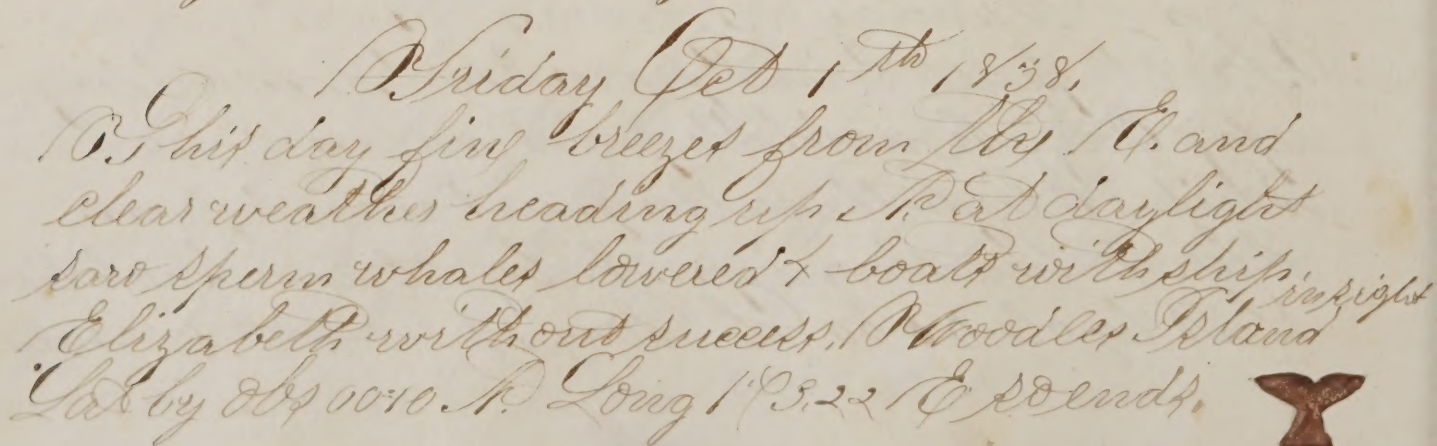 Friday Oct 1th 1838.
This day fine breezes from the E. and
clear weather heading up N. at daylight
saw sperm whales lowered 4 boats with ship
Elizabeth without success. Woodles Island in sight
Lat by obs 00.10 N. Long 173.22 E so ends.